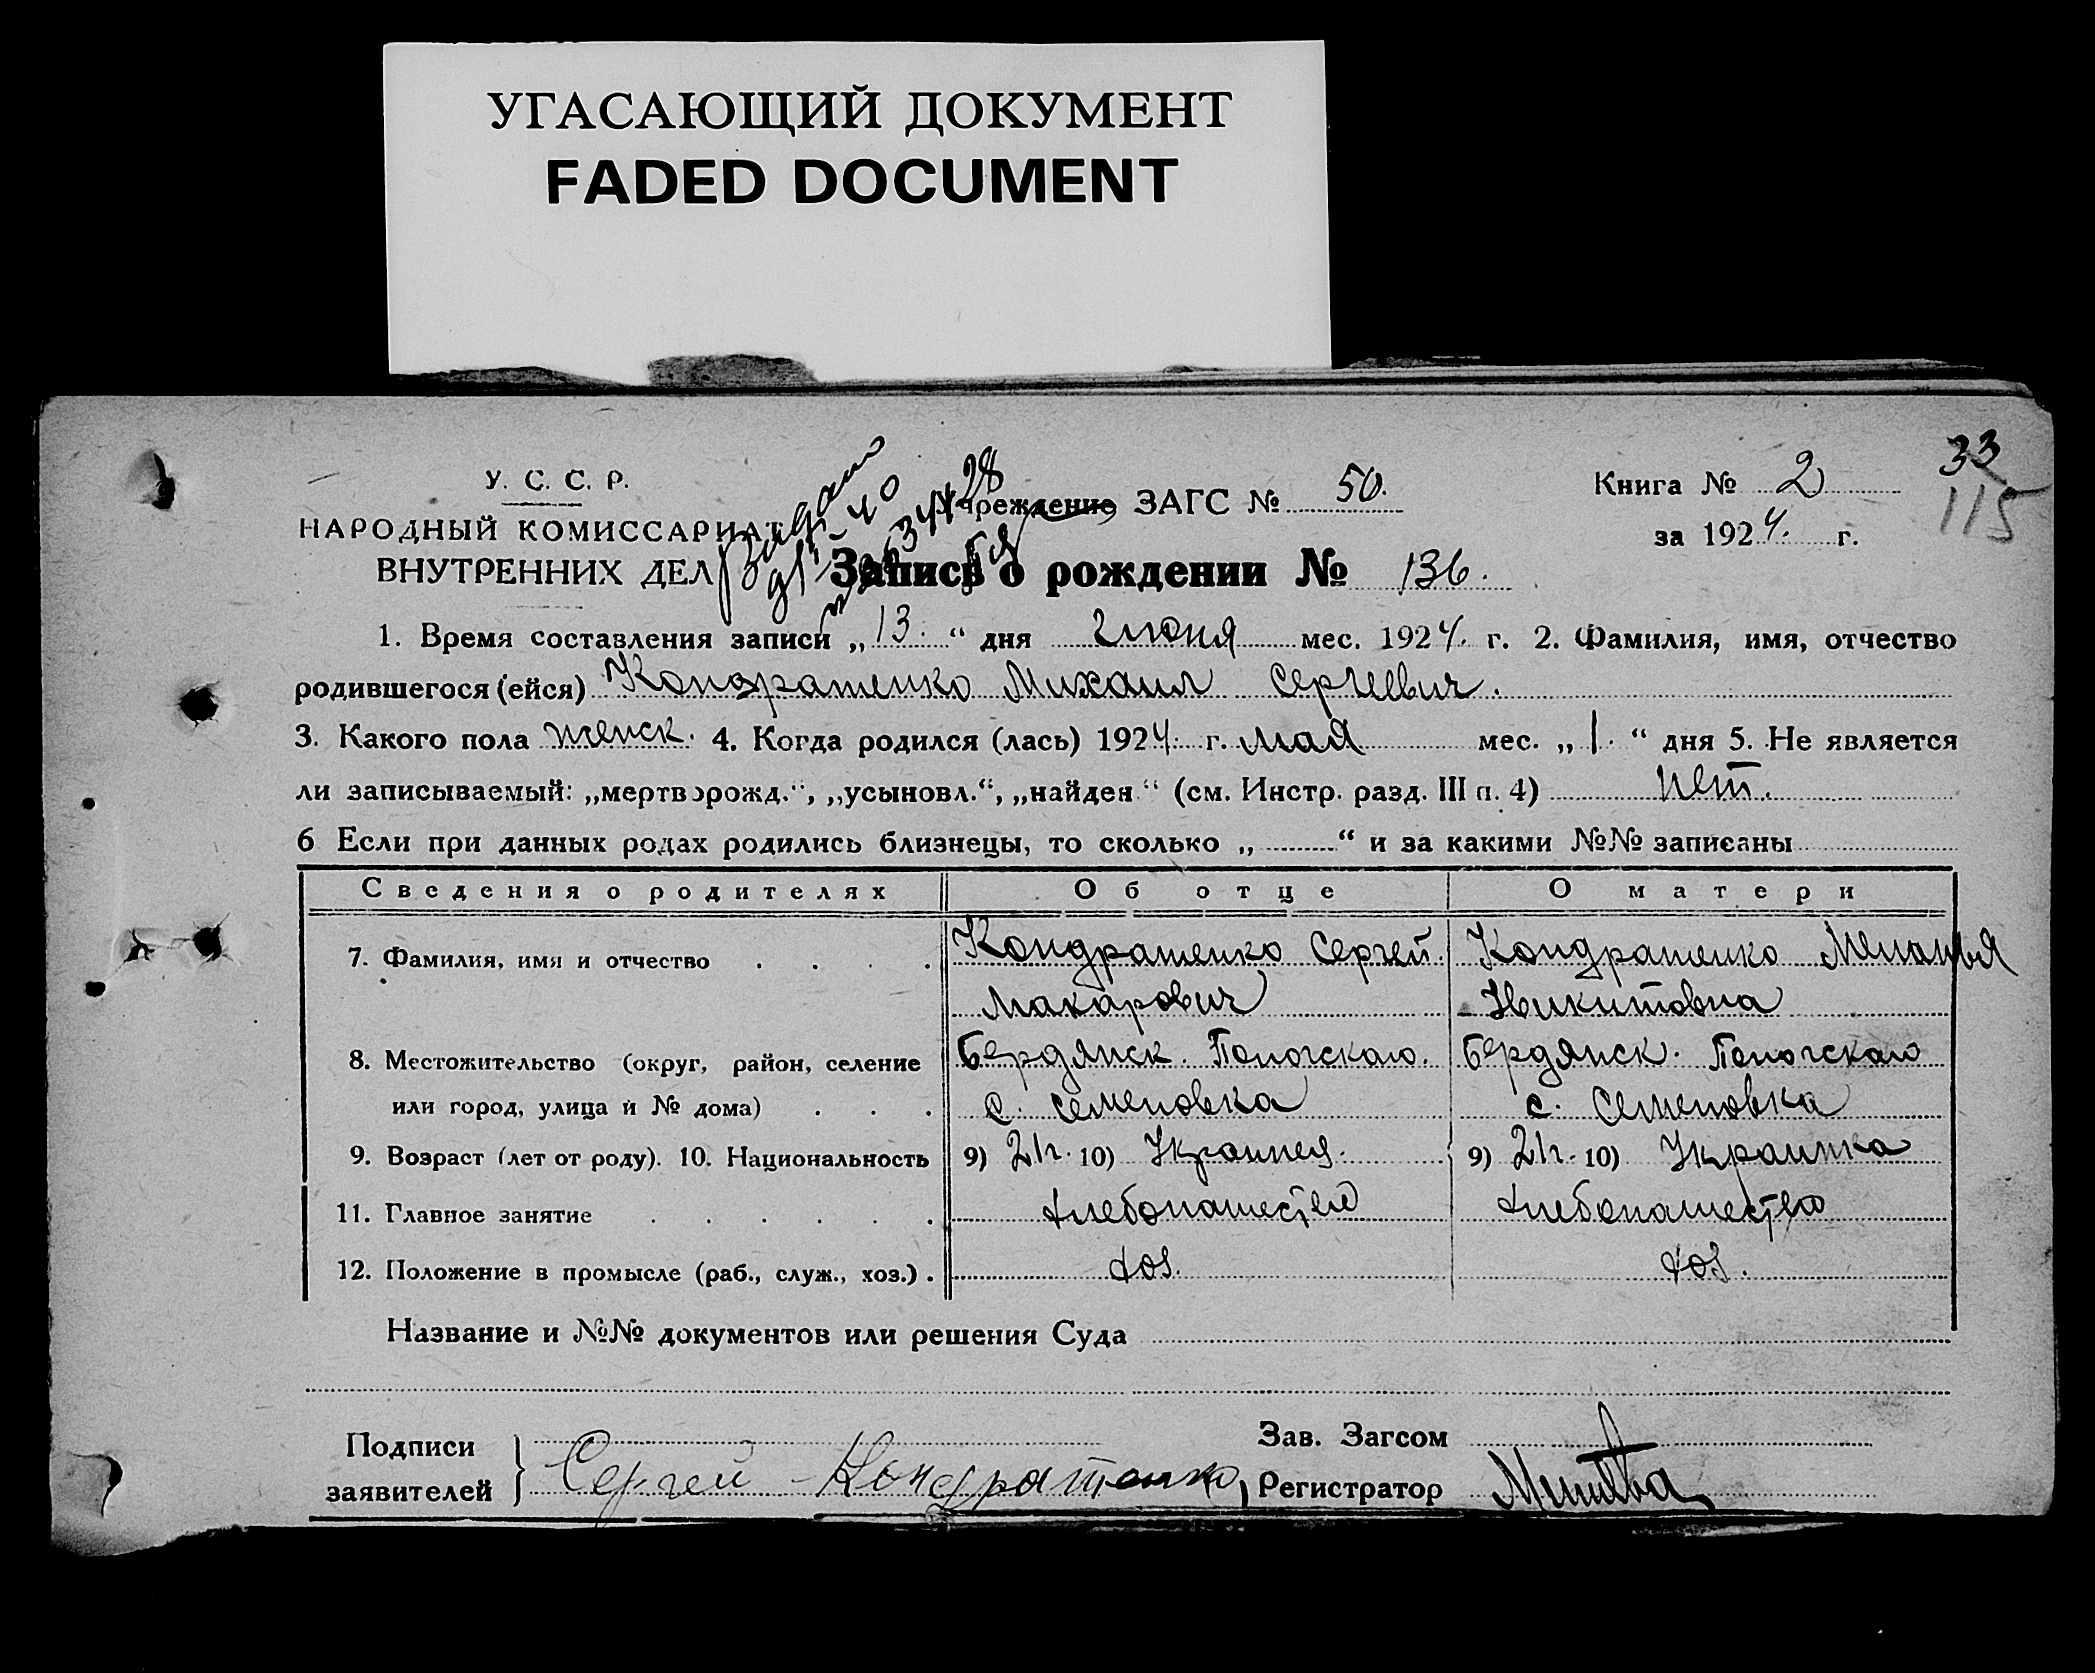 УГАСАЮЩИЙ ДОКУМЕНТ
FADED DOCUMENT
33
115
У. С. С. Р.
НАРОДНЫЙ КОМИССАРИАТ
ВНУТРЕННИХ ДЕЛ
Учреждение ЗАГС № 50.
Книга № 2
за 1924. г.
Запись о рождении № 136.
1. Время составления записи „13.“ дня Июня мес. 1924. г. 2. Фамилия, имя, отчество
родившегося (ейся) Кондратенко Михаил Сергеевич.
3. Какого пола женск. 4. Когда родился (лась) 1924. г. мая мес. „1.“ дня 5. Не является
ли записываемый: „мертворожд.“, „усыновл.“, „найден“ (см. Инстр. разд. III п. 4) нет.
6 Если при данных родах родились близнецы, то сколько „ “ и за какими №№ записаны
Сведения о родителях Об отце О матери
7. Фамилия, имя и отчество Кондратенко Сергей Кондратенко Меланья
Макарович Никитовна
8. Местожительство (округ, район, селение Бердянск. Бердянск.
или город, улица и № дома) с. Семеновка с. Семеновка
9. Возраст (лет от роду). 10. Национальность 9) 21 г. 10) Украинец. 9) 21 г. 10) Украинка
11. Главное занятие хлебопашество хлебопашество
12. Положение в промысле (раб., служ., хоз.) . хоз. хоз.
Название и №№ документов или решения Суда
Подписи
заявителей } Сергей Кондратенко
Зав. Загсом
Регистратор